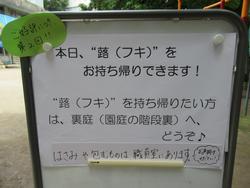 ご好評につき
第2回!!
本日、“蕗（フキ）”を
お持ち帰りできます！
“蕗（フキ）”を持ち帰りたい方
は、裏庭（園庭の階段裏）へ、
どうぞ♪
はさみや包むものは 職員室にあります。